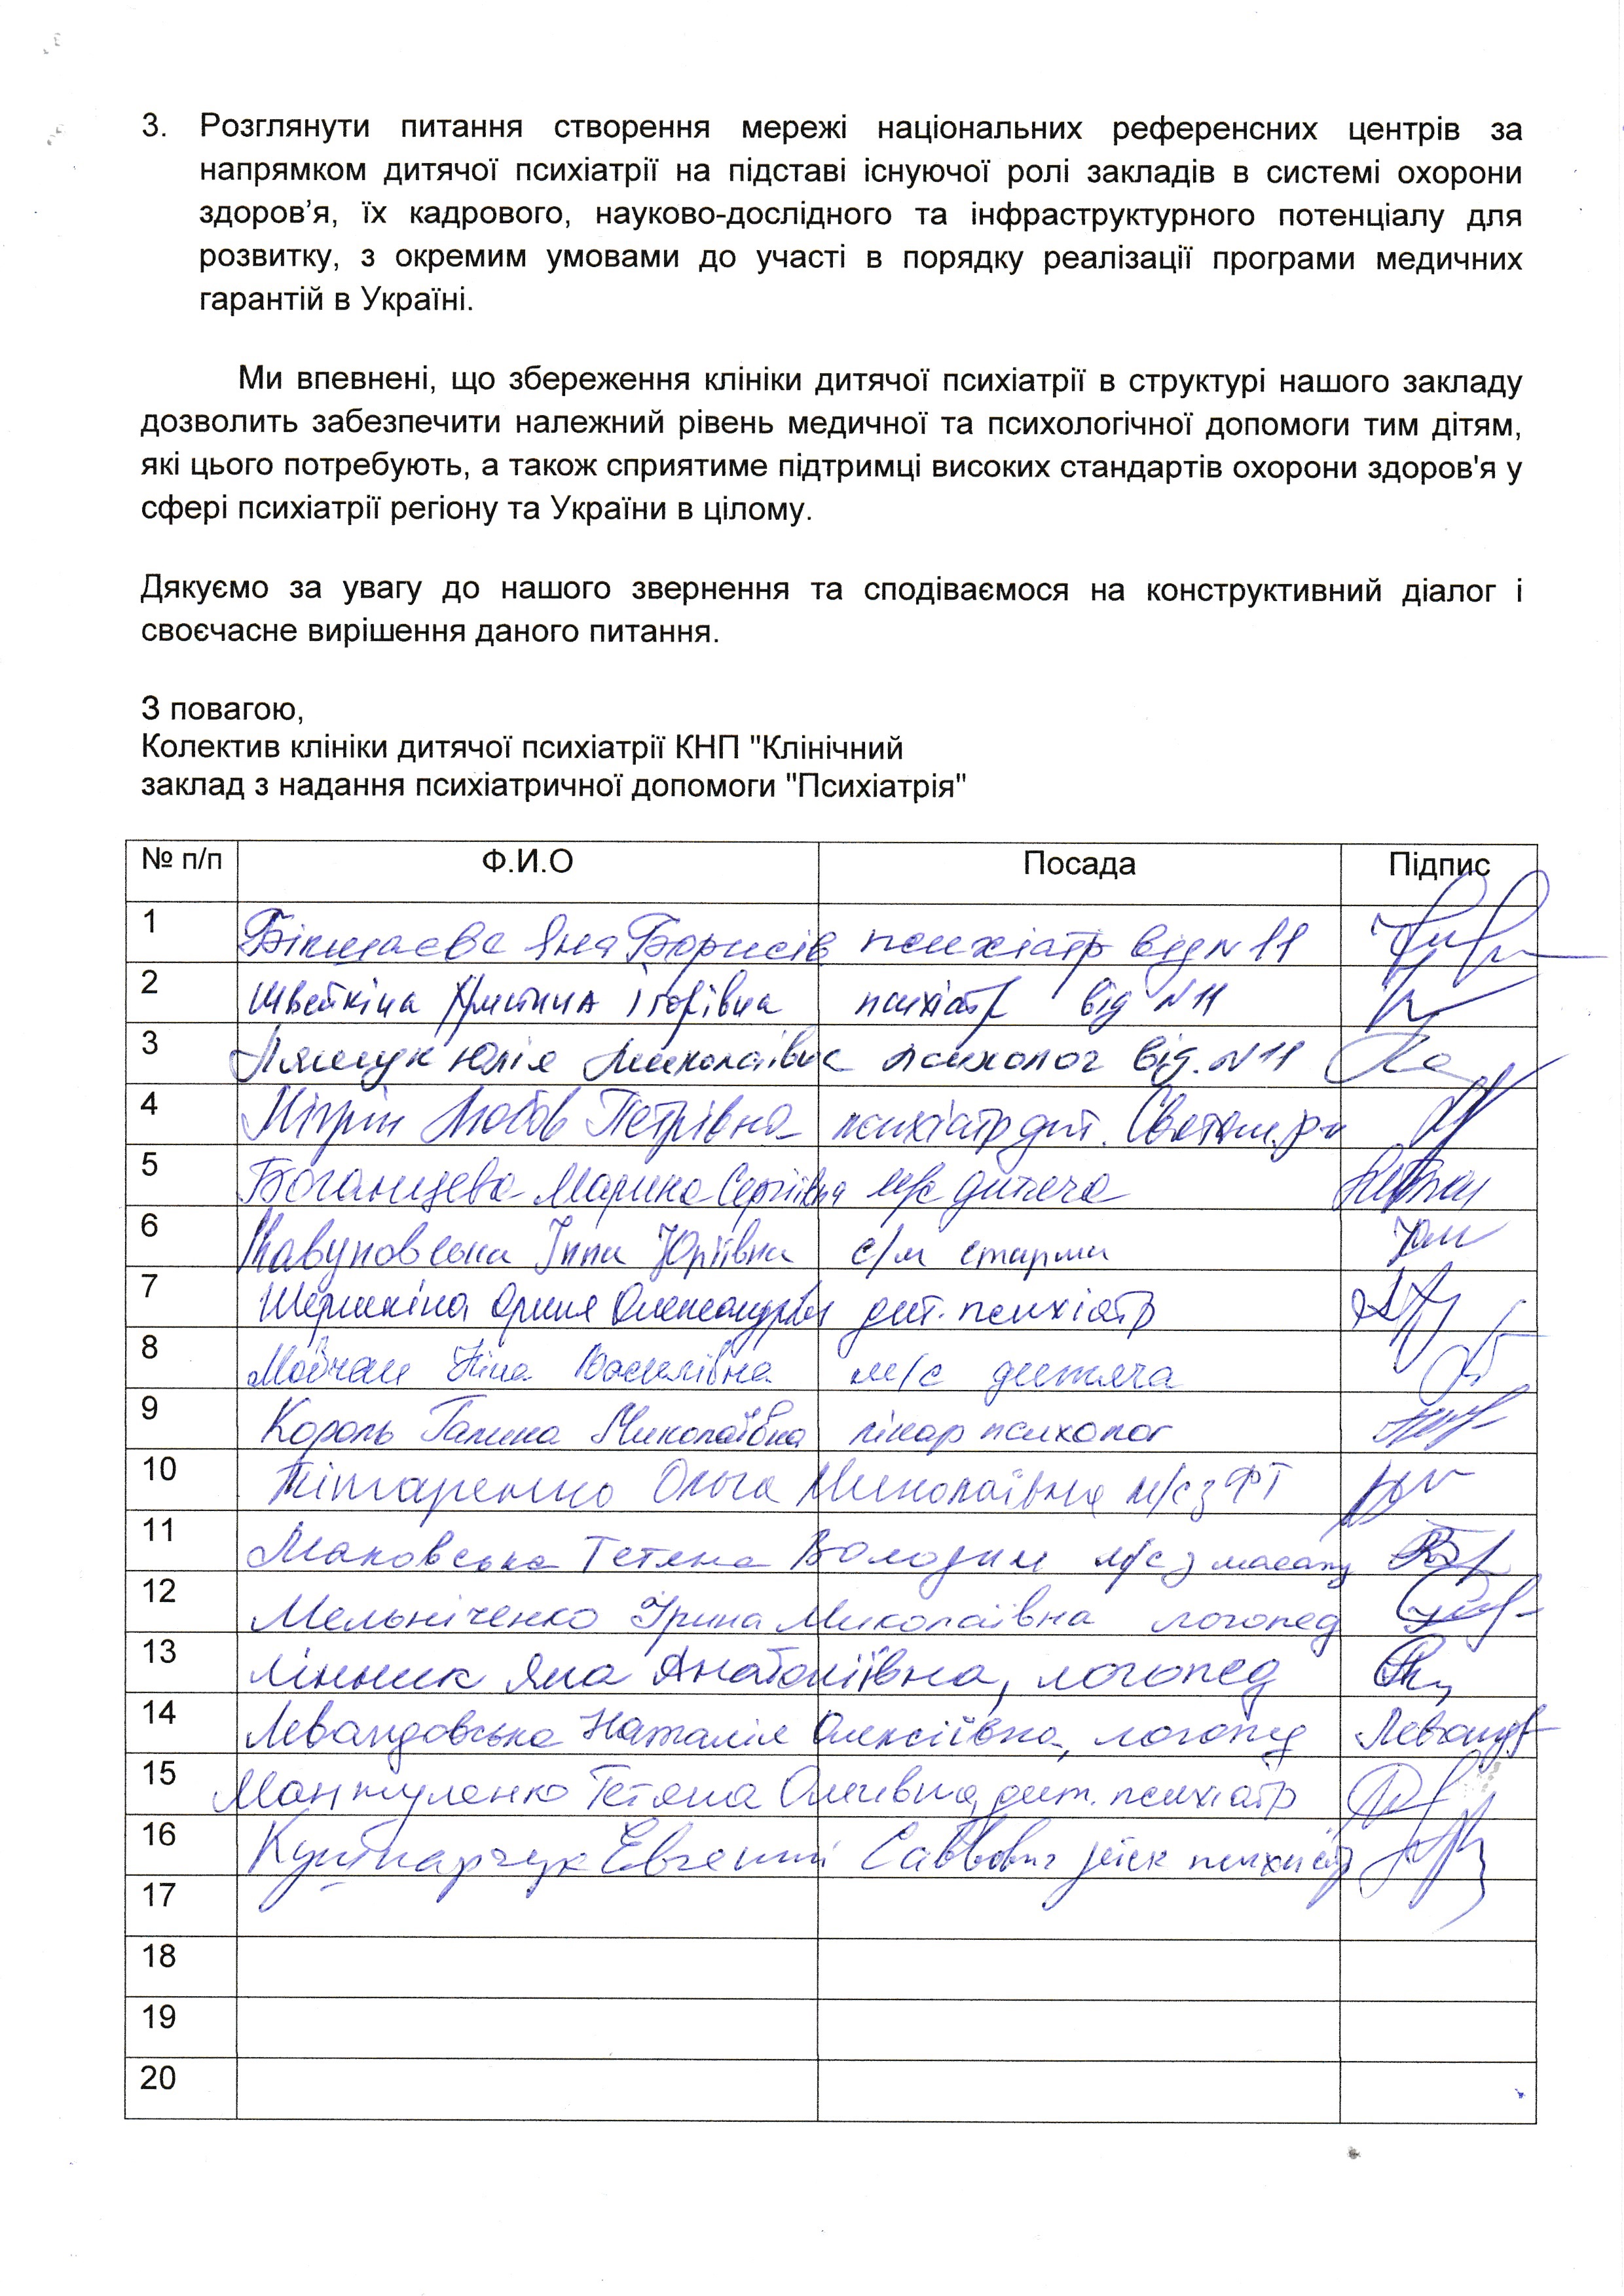 3. Розглянути питання створення мережі національних референсних центрів за
напрямком дитячої психіатрії на підставі існуючої ролі закладів в системі охорони
здоров’я, їх кадрового, науково-дослідного та інфраструктурного потенціалу для
розвитку, з окремим умовами до участі в порядку реалізації програми медичних
гарантій в Україні.
Ми впевнені, що збереження клініки дитячої психіатрії в структурі нашого закладу
дозволить забезпечити належний рівень медичної та психологічної допомоги тим дітям,
які цього потребують, а також сприятиме підтримці високих стандартів охорони здоров'я у
сфері психіатрії регіону та України в цілому.
Дякуємо за увагу до нашого звернення та сподіваємося на конструктивний діалог і
своєчасне вирішення даного питання.
З повагою,
Колектив клініки дитячої психіатрії КНП "Клінічний
заклад з надання психіатричної допомоги "Психіатрія"
№ п/п Ф.И.О Посада Підпис
1 Яна Борисів психіатр від N 11
2 Ігорівна психіатр від N 11
3 Лящук Юлія Миколаївна психолог від. N 11
4 Любов Петрівна психіатр дит. Святош. р-н
5 Марина Сергіївна м/с дитяча
6 Інна Юріївна с/м старша
7 Олександрівна дит. психіатр
8 Мовчан Ніна Василівна м/с дитяча
9 Король Галина Миколаївна лікар психолог
10 Тітаренко Ольга Миколаївна м/с з ФТ
11 Маковська Тетяна Володим м/с з масажу
12 Мельніченко Ірина Миколаївна логопед
13 Лінник Яна Анатоліївна, логопед
14 Левандовська Наталія Олексіївна, логопед
15 Мантуленко Тетяна дит. психіатр
16 Савович психіатр
17
18
19
20